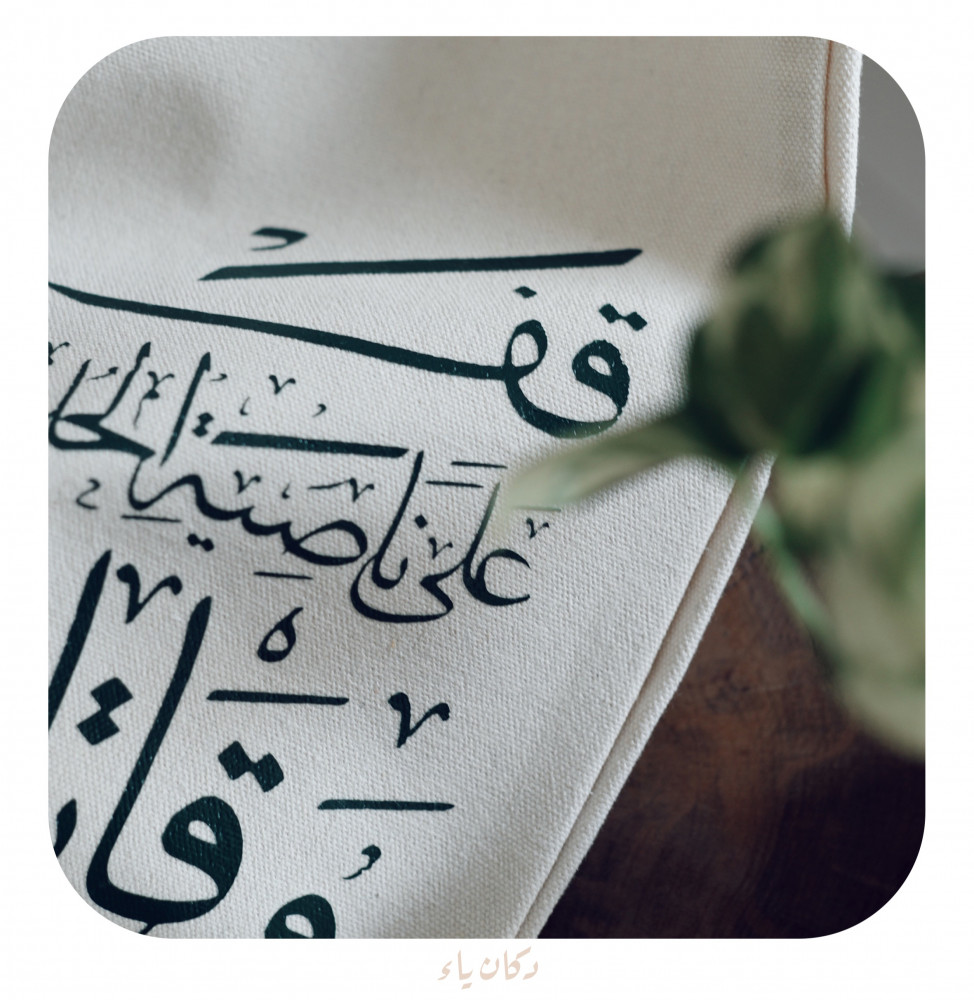 قف
على ناصية الحلم
وقاتل
دكان ياء